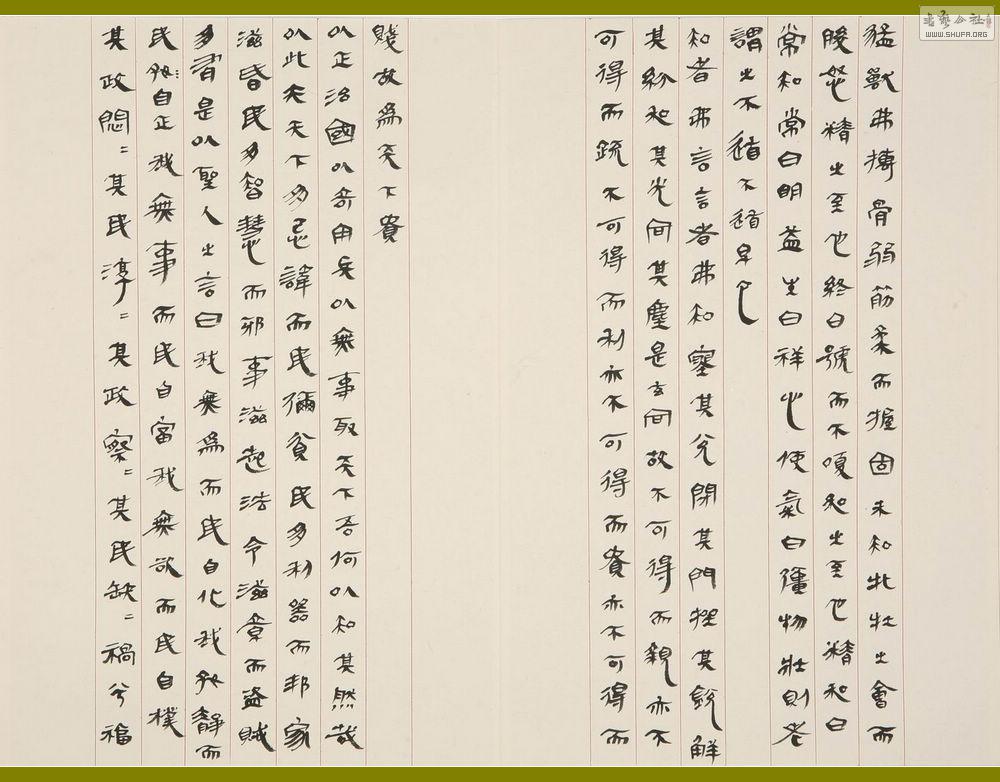 猛獸弗搏骨弱筋柔而握固未知牝牡之會而
朘怒精之至也終日號而不嗄和之至也精和曰
常知常曰明益生曰祥心使氣曰彊物壯則老
謂之不道不道早已
知者弗言言者弗知塞其兌閉其門挫其銳解
其紛和其光同其塵是玄同故不可得而親亦不
可得而疏不可得而利亦不可得而害亦不可得而
賤故為天下貴
以正治國以奇用兵以無事取天下吾何以知其然哉
以此夫天下多忌諱而民彌貧民多利器而邦家
滋昏民多智慧而邪事滋起法令滋章而盜賊
多有是以聖人之言曰我無為而民自化我好靜而
民自正我無事而民自富我無欲而民自樸
其政悶悶其民淳淳其政察察其民缺缺禍兮福
书艺公社
WWW.SHUFA.ORG